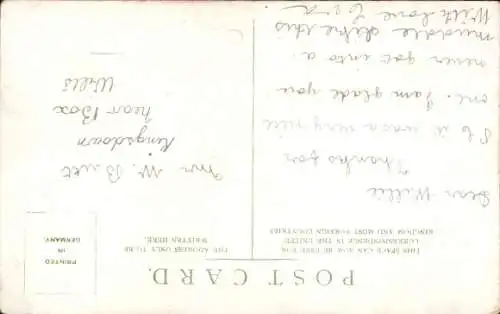 POST CARD.
THIS SPACE CAN NOW BE USED FOR
CORRESPONDENCE IN THE UNITED
KINGDOM AND MOST FOREIGN COUNTRIES
Dear Willie
Thanks for
P.C it was a very nice
one. I am glade you
never got into a
muddle like this
With love
THE ADDRESS ONLY TO BE
WRITTEN HERE.
PRINTED
IN
GERMANY.
Mr W. Butt
Kingsdown
Near Box
Wilts